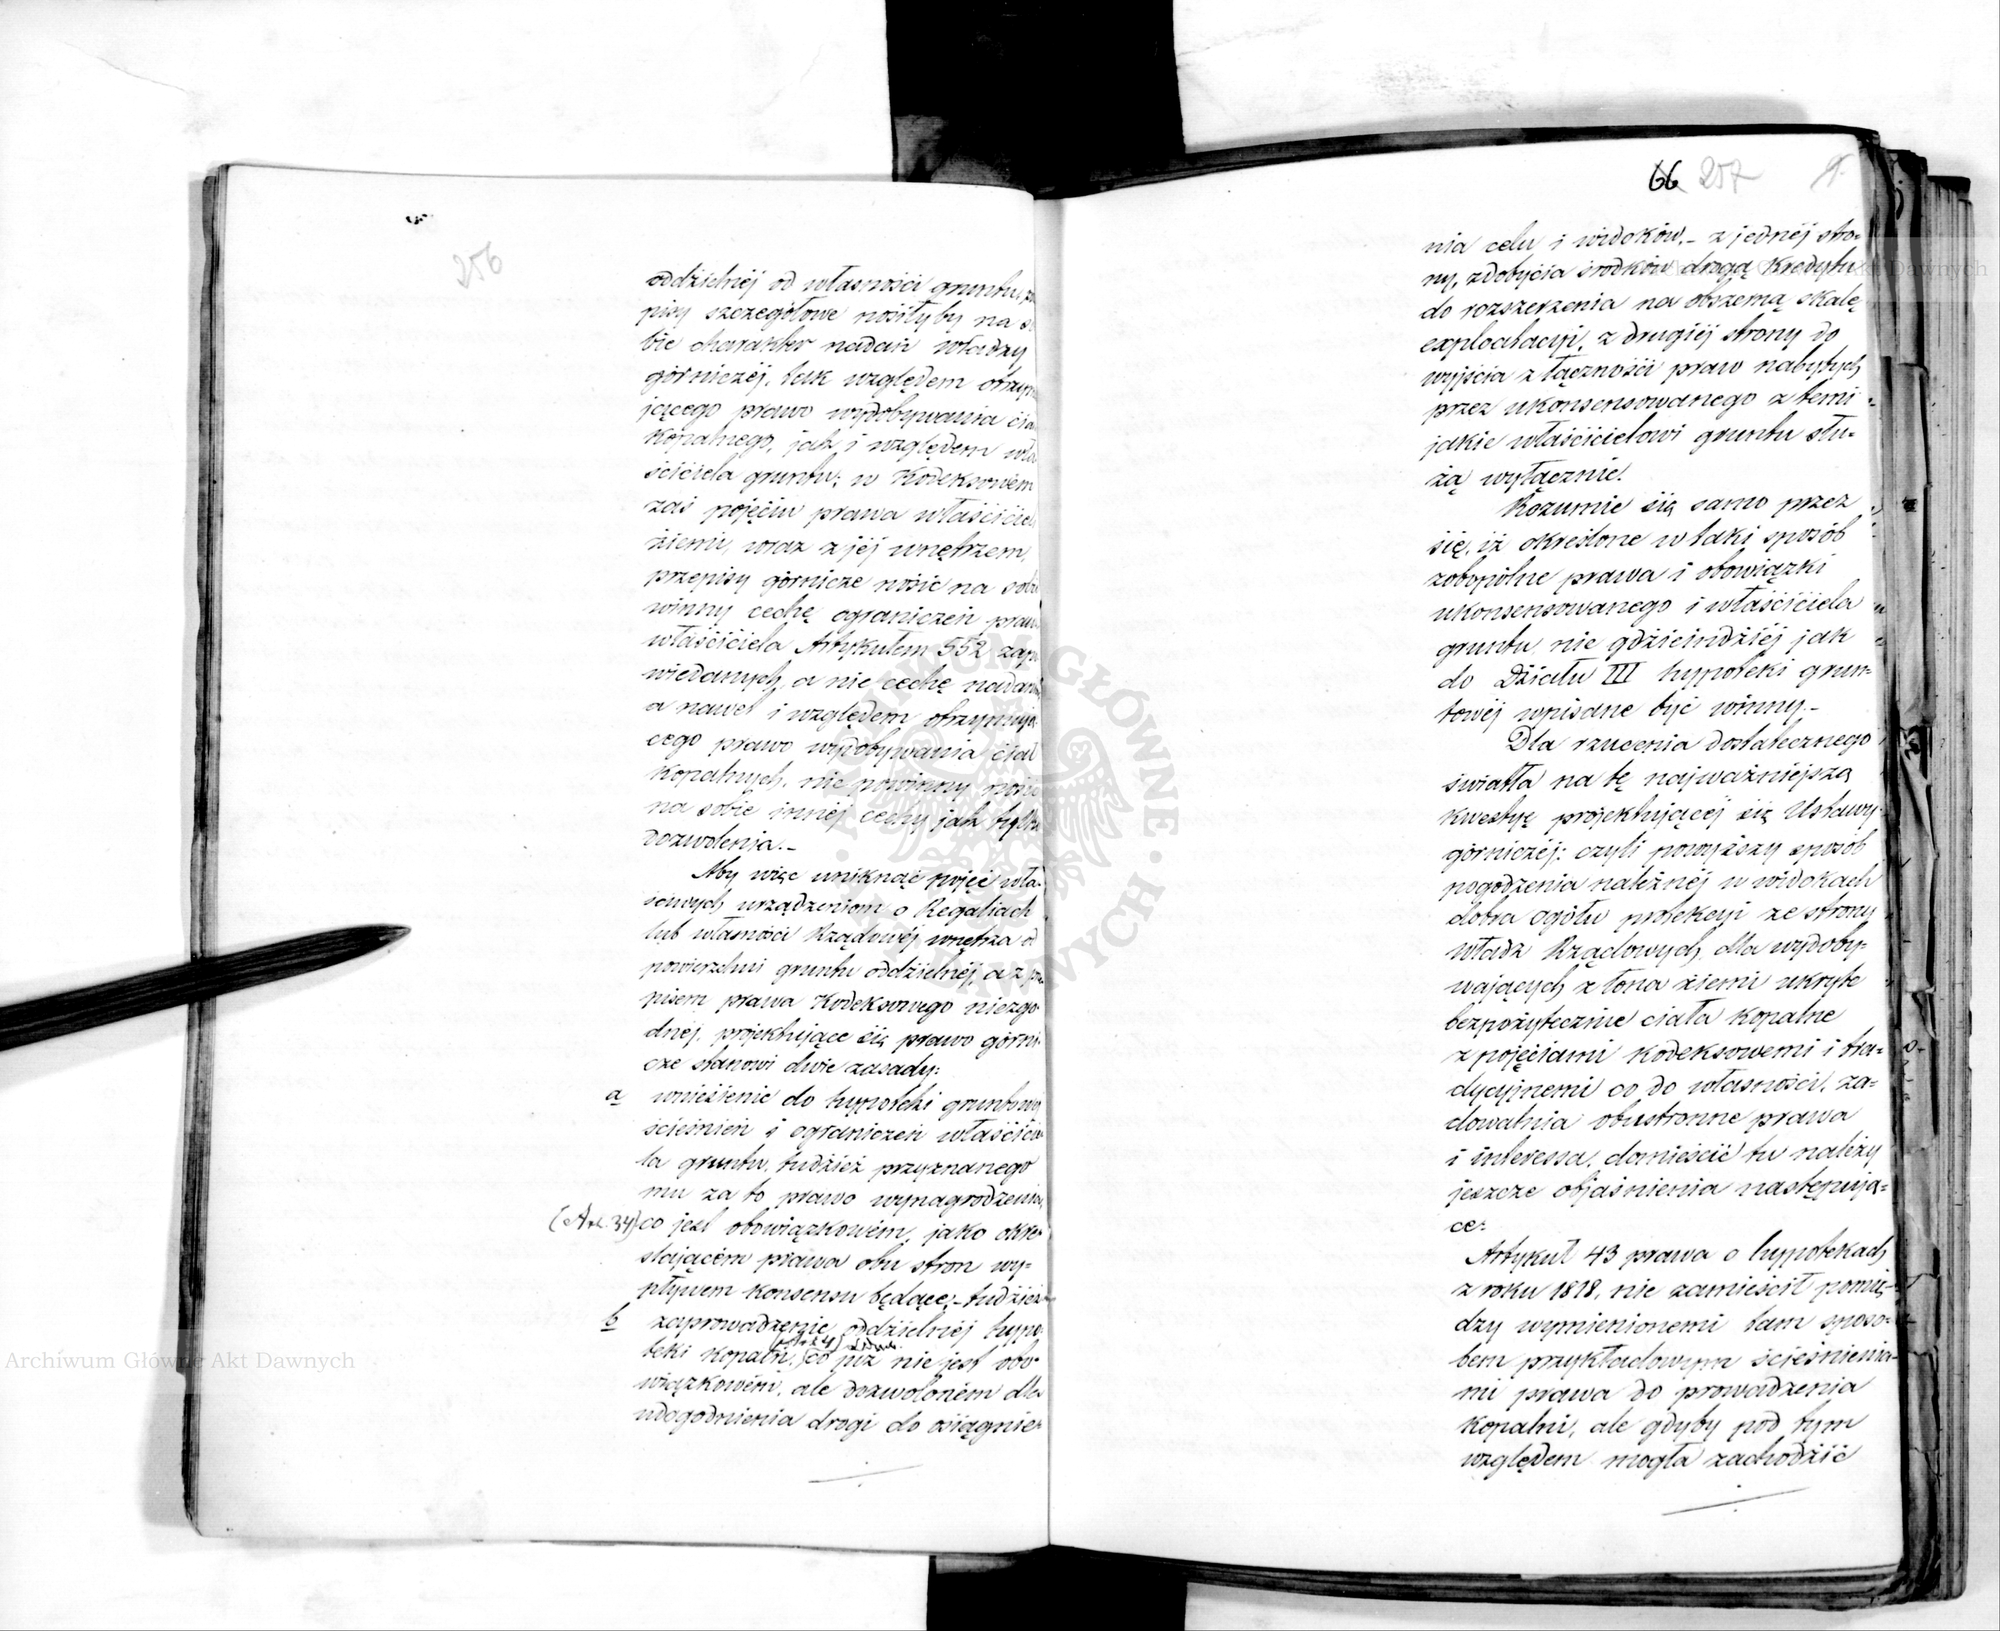 256
oddzielnéj od własności gruntu, prze
pisy szczegółowe nosiłyby na so
bie charakter nadań władzy
górniczéj, tak względem otrzymu
jącego prawo wydobywania ciał
kopalnego, jak i względem wła
ściciela gruntu; w Kodeksowém
zaś pojęciu prawa właściciela
ziemi, wraz z jéj wnętrzem,
przepisy górnicze nosić na sobie
winny cechę ograniczeń praw
właściciela Artykułem 552 zapo
wiedzanych, a nie cechę nadania
a nawet i względem otrzymują
cego prawo wydobywania ciał
kopalnych, nie powinny nosić
na sobie innéj cechy jak tylko
dozwolenia.–
Aby więc uniknąć pojęć wła-
ściwych urządzeniom o Regaliach
lub własności Rządowéj wnętrza od
powierzchni gruntu oddzielnéj, a z prze
pisem prawa Kodeksowego niezgo
dnej, projektujące się prawo górni-
cze stanowi dwie zasady:
a wnieśienie do hypoteki gruntowéj
ścieśnień i ograniczeń właścicie
la gruntu, tudzież przyznanego
mu za to prawo wynagrodzenia,
(Art. 34) co jest obowiązkowém, jako okre
ślającém prawa obu stron wy=
pływem konsensu będące;– tudzież
b zaprowadzenie oddzielnéj hypo
teki kopalń, co już nie jest obo-
wiązkowém, ale dozwoloném dla
udogodnienia drogi do osiągnie-
66 257
nia celu i widoków,– z jednéj stro=
ny, zdobycia środków drogą Kredytu
do rozszerzenia na obszerną skalę
exploatacyi, z drugiéj strony do
wyjścia z łączności praw nabytych
przez ukonsensowanego z temi
jakie właścicielowi gruntu słu-
żą wyłącznie.
Rozumie się samo przez
się, iż określone w taki sposób
zobopólne prawa i obowiązki
ukonsensowanego i właściciela
gruntu, nie gdzieindziéj jak
do Działu III hypoteki grun-
towéj wpisane być winny.–
Dla rzucenia dostatecznego
światła na tę najważniejszą
kwestyę projektującéj się Ustawy
górniczéj: czyli powyższy sposób
pogodzenia należnéj w widokach
dobra ogółu protekcyi ze strony
władz Rządowych, dla wydoby=
wających z łona ziemi ukryte
bezpożytecznie ciała kopalne
z pojęciami kodeksowemi i tra=
dycyjnemi co do własności, za=
dowalnia obustronne prawa
i interessa, domieścić tu należy
jeszcze objaśnienia następują=
ce:
Artykuł 43 prawa o hypotekach
z roku 1818, nie zamieścił pomię-
dzy wymienionemi tam sposo=
bem przykładowym ścieśnienia-
mi prawa do prowadzenia
kopalni, ale gdyby pod tym
względem mogła zachodzić
ARCHIWUM GŁÓWNE AKT DAWNYCH
Archiwum Główne Akt Dawnych
Archiwum Główne Akt Dawnych